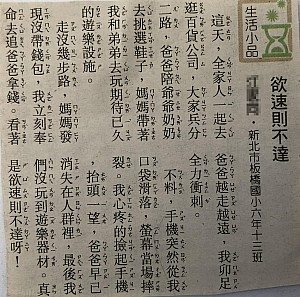 生活小品
欲速則不達
・新北市板橋國小六年十三班
這天，全家人一起去
逛百貨公司，大家兵分
二路，爸爸陪爺爺奶奶
去挑選鞋子，媽媽帶著
我和弟弟去玩期待已久
的遊樂設施。
走沒幾步路，媽媽發
現沒帶錢包，我立刻奉
命去追爸爸拿錢。看著
爸爸越走越遠，我卯足
全力衝刺。
不料，手機突然從我
口袋滑落，螢幕當場摔
裂。我心疼的撿起手機
，抬頭一望，爸爸早已
消失在人群裡，最後我
們沒玩到遊樂器材。真
是欲速則不達呀！